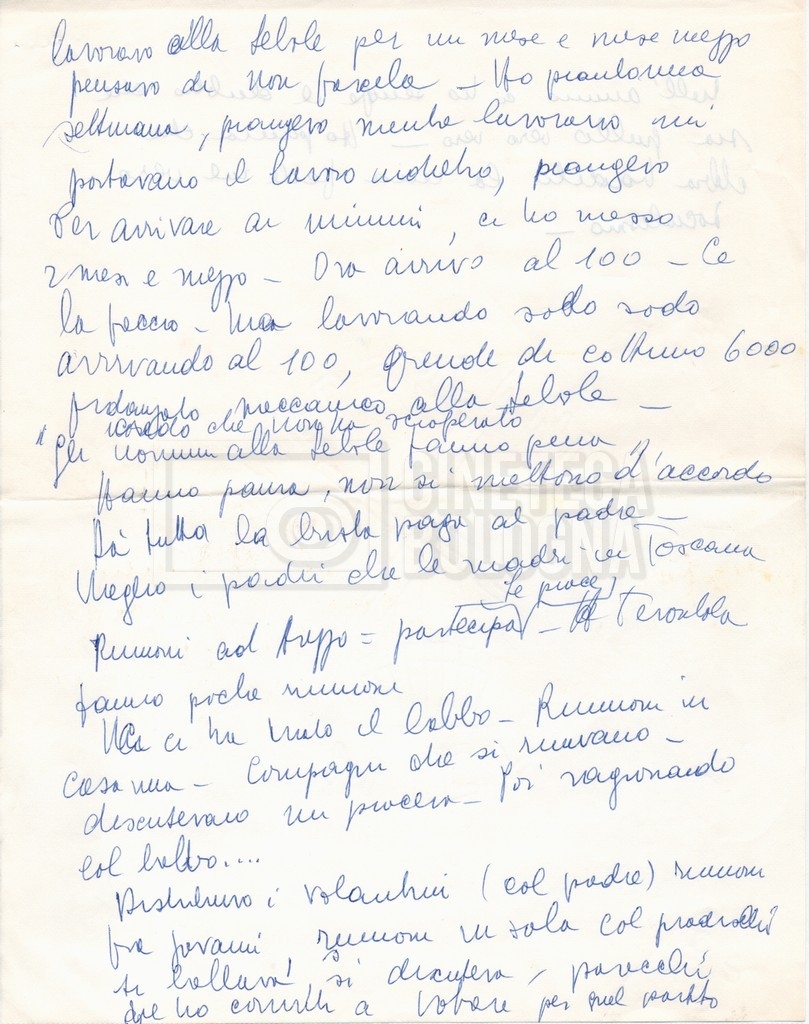 lavoravo alla Lebole per un mese e mese mezzo
pensavo di non farcela – Ho pianto una
settimana, piangevo mentre lavoravo mi
portavano il lavoro indietro, piangevo
Per arrivare ai minimi, ci ho messo
2 mesi e mezzo – Ora arrivo al 100 – Ce
la faccio – Ma lavorando sodo sodo
arrivando al 100, prende di cottimo 6000
fidanzato meccanico alla Lebole –
che non ha scioperato
"gli uomini alla Lebole fanno pena"
Hanno paura, non si mettono d'accordo
Dà tutta la busta paga al padre –
Meglio i padri che le madri in Toscana
le piace
Riunioni ad Arezzo = partecipa – A Terontola
fanno poche riunioni
Ma ci ha tirato il babbo – Riunioni in
casa mia – Compagni che si riunivano –
discutevano mi piaceva – Poi ragionando
col babbo....
Distribuivo i volantini (col padre) riunioni
fra giovani, riunioni in sala col
si ballava, si discuteva, parecchi
che ho convinti a votare per quel partito
CINETECA
BOLOGNA